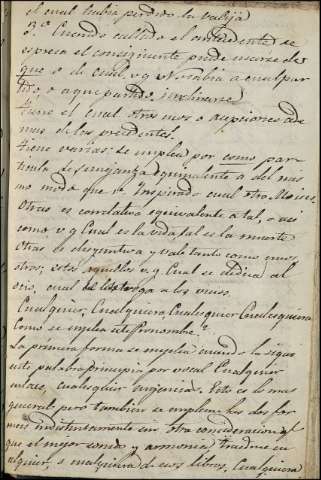 el cual habia perdido la valija
3.º Cuando callado el antecedente se
espresa el consiguiente puede usarse de
que o de cual, v.g. No sabia a cual par
tido o a que partido inclinarse
Tiene el cual otros usos o acepciones ade
mas de los precedentes?
Tiene varias: se emplea por como par
ticula de semejanza equivalente a del mis
mo modo que v.g. Inspirado cual otro Moises.
Otras es correlativo equivalente a tal, o asi
como v.g. Cual es la vida, tal es la muerte
Otras es disyuntiva y vale tanto como unos
otros; estos aquellos v.g. Cual se dedica al
ocio, cual se entrega a los vicios.
Cualquier, Cualquiera, Cualesquier Cualesquiera
Como se emplea este Pronombre?
La primera forma se emplea cuando la sigui
ente palabra principia por vocal Cualquier
enlace, cualesquier urgencias. Esto es lo mas
general pero tambien se emplean las dos for
mas indistintamente sin otra consideracion q.
que el mejor sonido y armonia traedme cu
alquier, o cualquiera de esos libros, Cualquiera